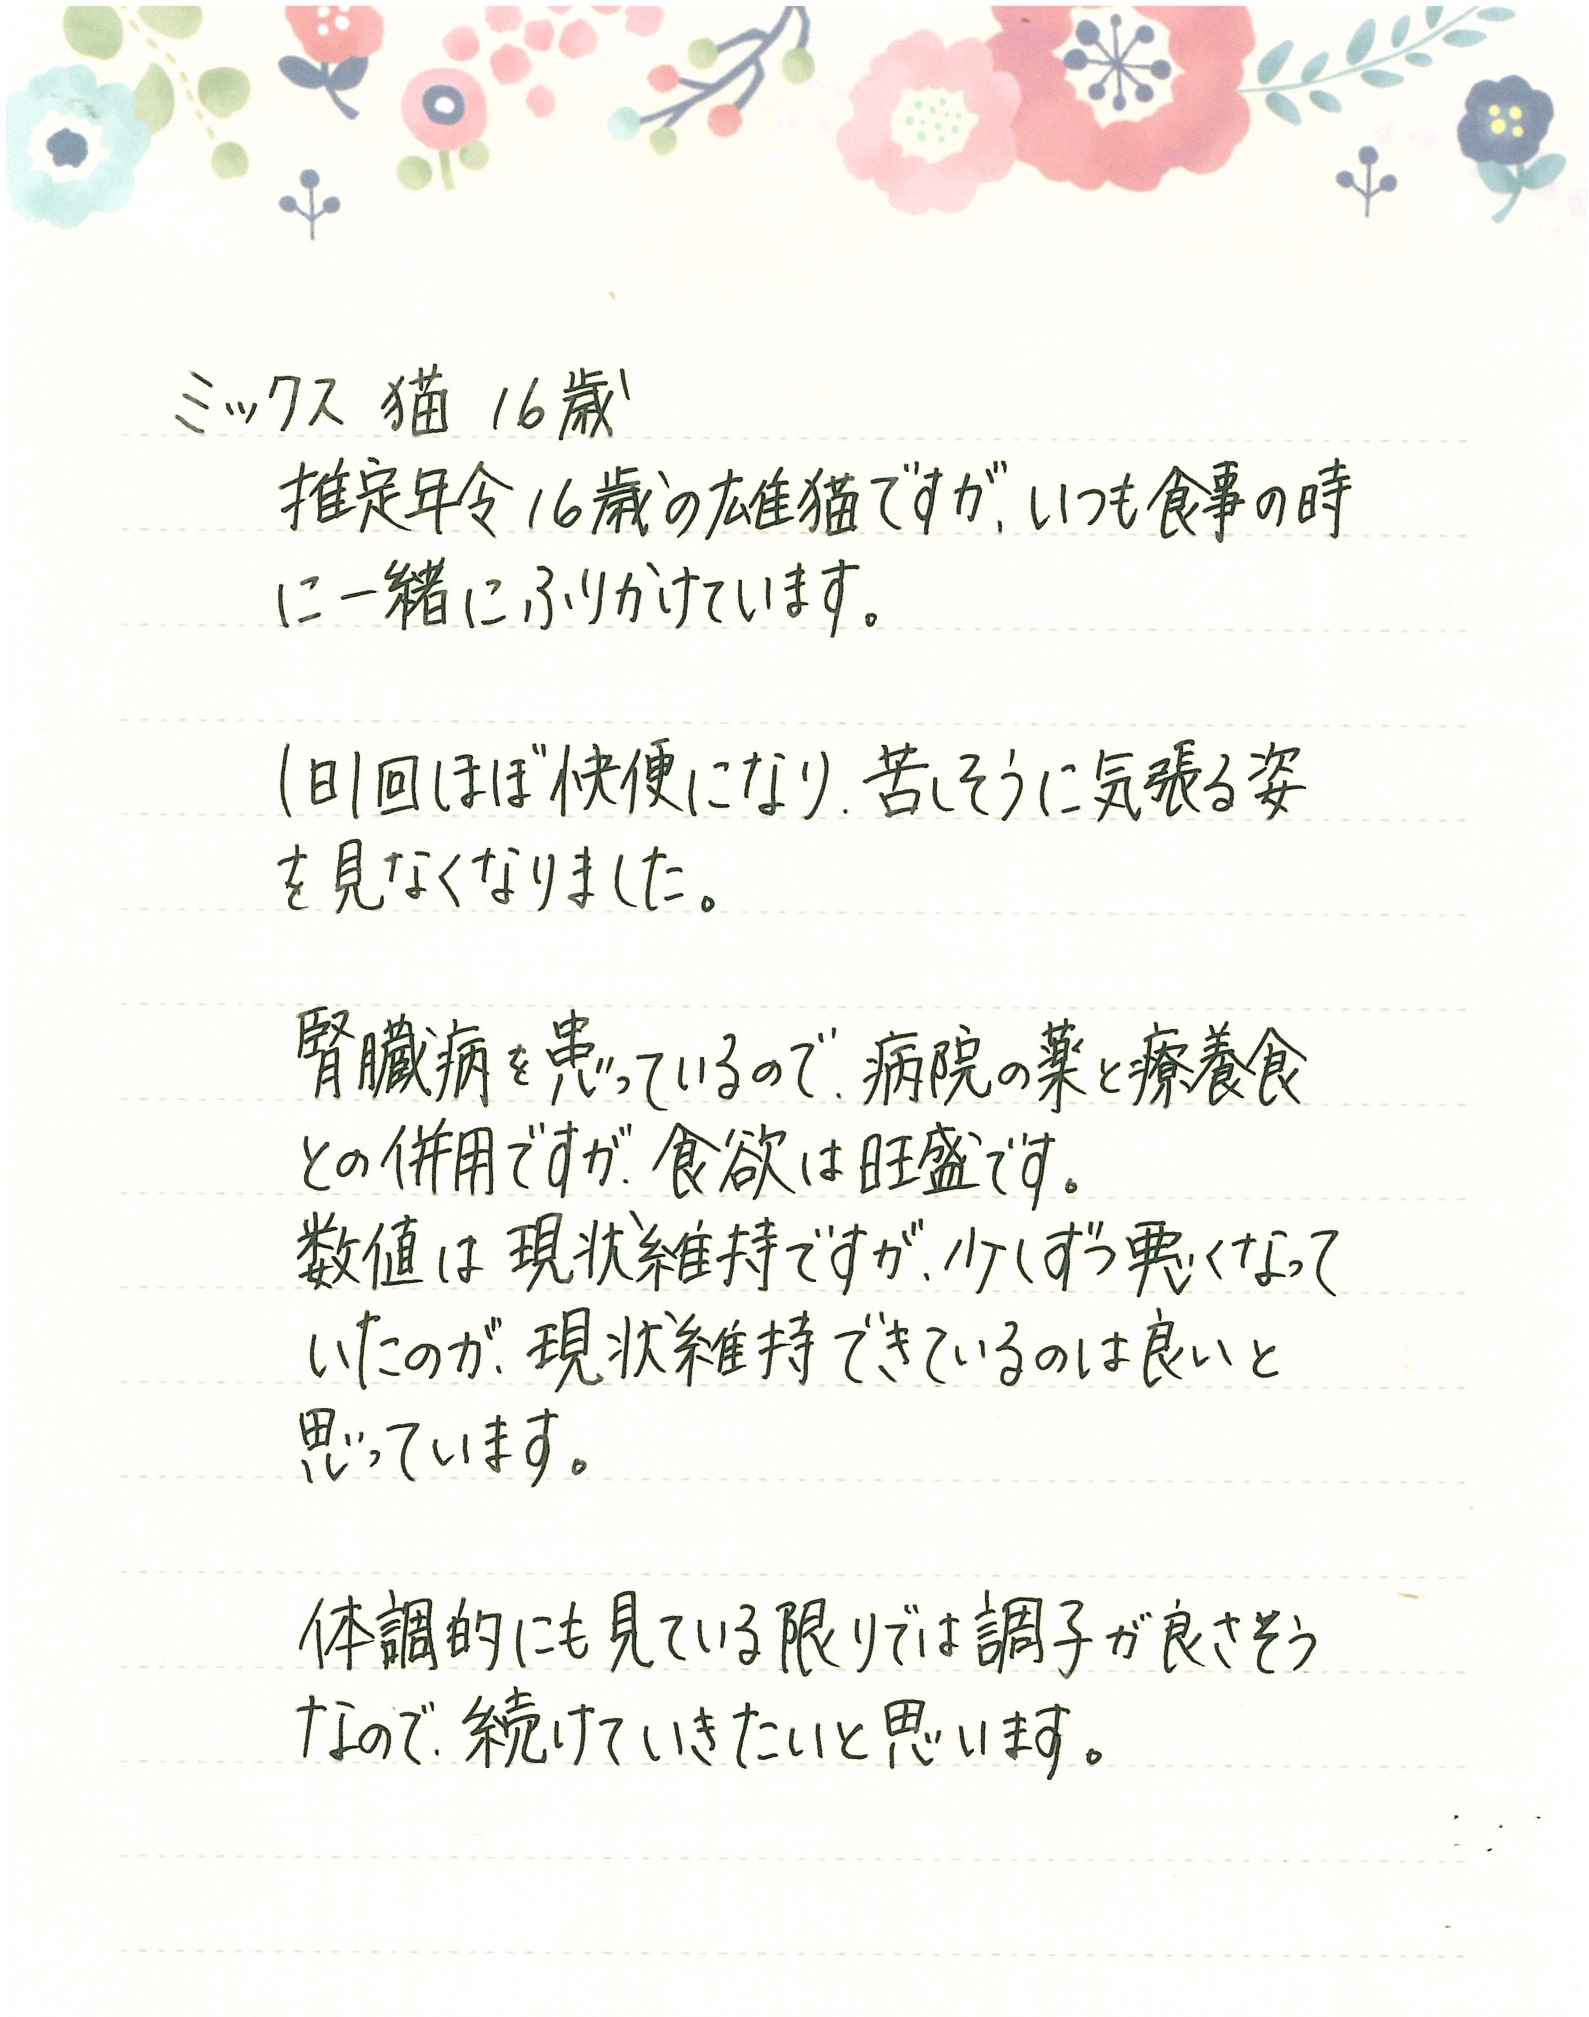 ミックス 猫 16歳
推定年令16歳の雄猫ですが、いつも食事の時
に一緒にふりかけています。
1日1回ほぼ快便になり、苦しそうに気張る姿
を見なくなりました。
腎臓病を患っているので、病院の薬と療養食
との併用ですが、食欲は旺盛です。
数値は現状維持ですが、少しずつ悪くなって
いたのが、現状維持できているのは良いと
思っています。
体調的にも見ている限りでは調子が良さそう
なので、続けていきたいと思います。